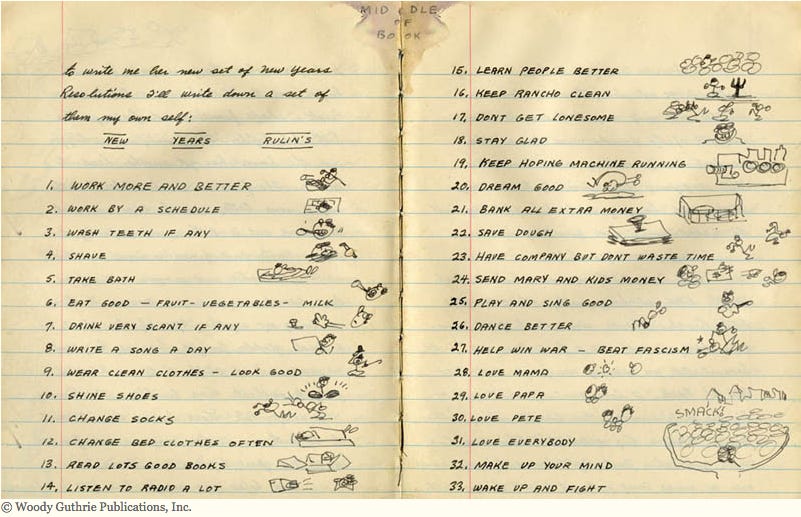 MIDDLE
OF
BOOK
to write me her new set of New Years
Resolutions I'll write down a set of
them my own self:
NEW YEARS RULIN'S
1. WORK MORE AND BETTER
2. WORK BY A SCHEDULE
3. WASH TEETH IF ANY
4. SHAVE
5. TAKE BATH
6. EAT GOOD — FRUIT - VEGETABLES - MILK
7. DRINK VERY SCANT IF ANY
8. WRITE A SONG A DAY
9. WEAR CLEAN CLOTHES — LOOK GOOD
10. SHINE SHOES
11. CHANGE SOCKS
12. CHANGE BED CLOTHES OFTEN
13. READ LOTS GOOD BOOKS
14. LISTEN TO RADIO A LOT
15. LEARN PEOPLE BETTER
16. KEEP RANCHO CLEAN
17. DONT GET LONESOME
18. STAY GLAD
19. KEEP HOPING MACHINE RUNNING
20. DREAM GOOD
21. BANK ALL EXTRA MONEY
22. SAVE DOUGH
23. HAVE COMPANY BUT DONT WASTE TIME
24. SEND MARY AND KIDS MONEY
25. PLAY AND SING GOOD
26. DANCE BETTER
27. HELP WIN WAR — BEAT FASCISM
28. LOVE MAMA
29. LOVE PAPA
30. LOVE PETE
SMACK!
31. LOVE EVERYBODY
32. MAKE UP YOUR MIND
33. WAKE UP AND FIGHT
© Woody Guthrie Publications, Inc.